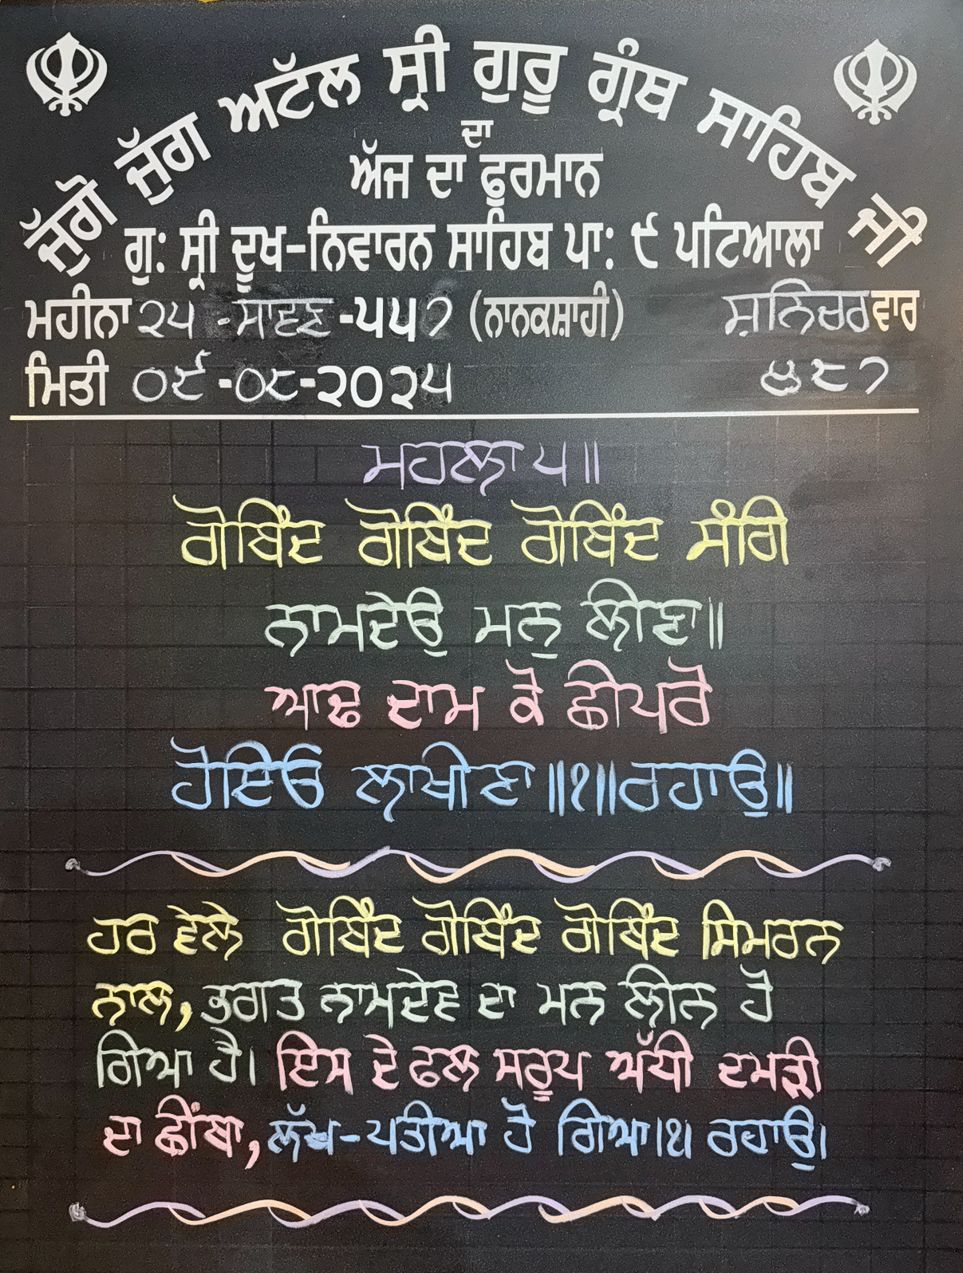 ਜੁੱਗੋ ਜੁੱਗ ਅਟੱਲ ਸ੍ਰੀ ਗੁਰੂ ਗ੍ਰੰਥ ਸਾਹਿਬ ਜੀ
ਦਾ
ਅੱਜ ਦਾ ਫੁਰਮਾਨ
ਗੁ: ਸ੍ਰੀ ਦੂਖ-ਨਿਵਾਰਨ ਸਾਹਿਬ ਪਾ: ੯ ਪਟਿਆਲਾ
ਮਹੀਨਾ ੨੫ -ਸਾਵਣ -੫੫੭ (ਨਾਨਕਸ਼ਾਹੀ) ਸ਼ਨਿਚਰਵਾਰ
ਮਿਤੀ ੦੯-੦੮-੨੦੨੫ ੪੮੭
ਮਹਲਾ ੫॥
ਗੋਬਿੰਦ ਗੋਬਿੰਦ ਗੋਬਿੰਦ ਸੰਗਿ
ਨਾਮਦੇਉ ਮਨੁ ਲੀਣਾ॥
ਆਢ ਦਾਮ ਕੋ ਛੀਪਰੋ
ਹੋਇਓ ਲਾਖੀਣਾ॥੧॥ਰਹਾਉ॥
ਹਰ ਵੇਲੇ ਗੋਬਿੰਦ ਗੋਬਿੰਦ ਗੋਬਿੰਦ ਸਿਮਰਨ
ਨਾਲ, ਭਗਤ ਨਾਮਦੇਵ ਦਾ ਮਨ ਲੀਨ ਹੋ
ਗਿਆ ਹੈ। ਇਸ ਦੇ ਫਲ ਸਰੂਪ ਅੱਧੀ ਦਮੜੀ
ਦਾ ਛੀਂਬਾ, ਲੱਖ-ਪਤੀਆ ਹੋ ਗਿਆ।੧। ਰਹਾਉ।